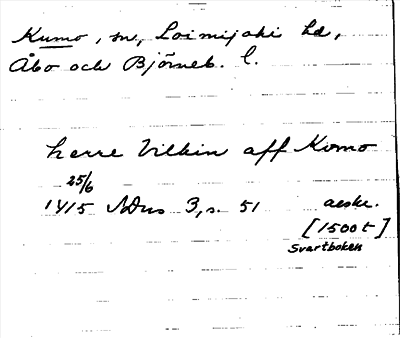 Kumo, sn, Loimijoki hd,
Åbo och Björneb. l.
herre Vilkin aff Komo
25/6
1415 SDns 3, s. 51 avskr.
[1500t]
Svartboken